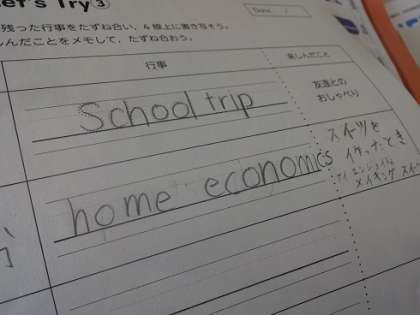 et's Try③
Date /
残った行事をたずね合い、4線上に書き写そう。
しんだことをメモして、たずね合おう。
行事
楽しんだこと
School trip
友達との
おしゃべり
home economics
スイーツを
とき
アイ
メイキング スイー